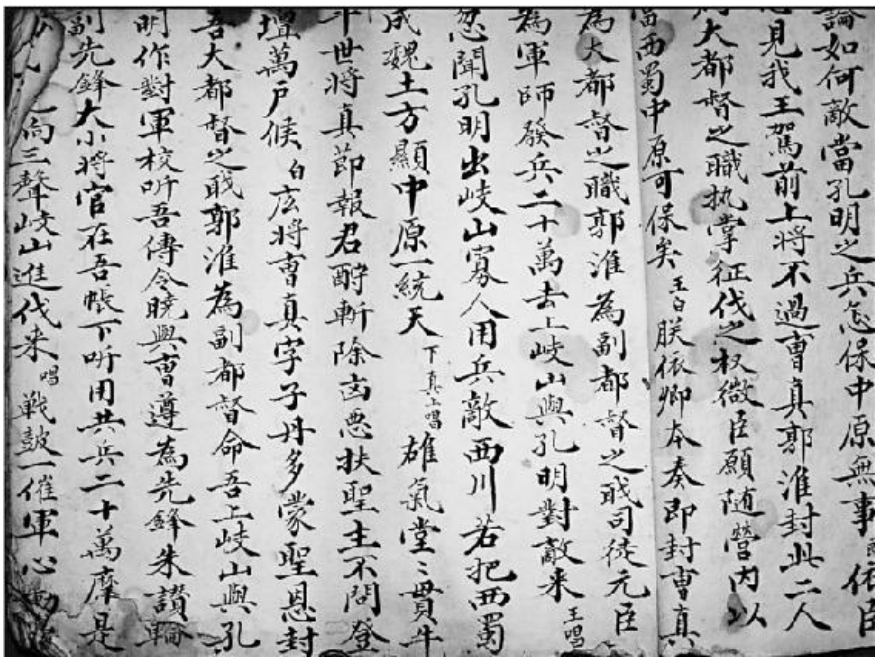 論如何敵當孔明之兵怎保中原無事依臣
見我王駕前上將不過曹真郭淮封此二人
大都督之職执掌征伐之权微臣願随營内以
西蜀中原可保矣王白朕依卿本奏即封曹真
為大都督之職郭淮為副都督之戝司徒元臣
為軍師發兵二十萬去上岐山與孔明對敵来王唱
忽聞孔明出岐山寡人用兵敵西川若把西蜀
成魏土方顯中原一統天下真上唱雄氣堂〻貫牛
斗世將真莭報君酧斬除凶悪扶聖主不問登
壇萬户候白庅將曹真字子丹多蒙聖恩封
吾大都督之戝郭淮為副都督命吾上岐山與孔
明作對軍校听吾傳令曉與曹遵為先鋒朱讃
副先鋒大小將官在吾帳下听用共兵二十萬摩是
尚三聲岐山進伐来唱戰皷一催軍心